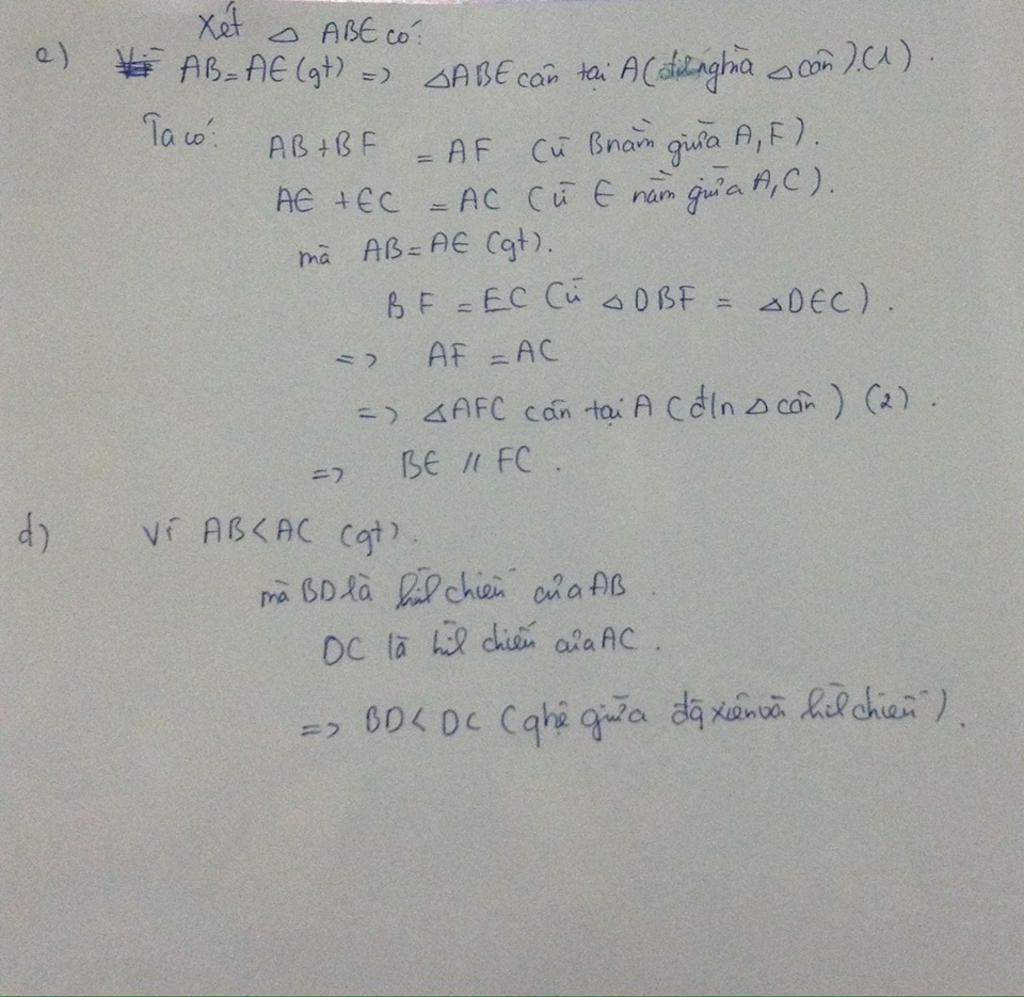 Xét △ ABE có:
c) AB = AE (gt) => △ABE cân tại A (định nghĩa △ cân). (1).
Ta có: AB + BF = AF (Vì B nằm giữa A, F).
AE + EC = AC (Vì E nằm giữa A, C).
mà AB = AE (gt).
BF = EC (Vì △DBF = △DEC).
=> AF = AC
=> △AFC cân tại A (đ/n △ cân) (2).
=> BE // FC.
d) Vì AB < AC (gt).
mà BD là hình chiếu của AB.
DC là hình chiếu của AC.
=> BD < DC (qhệ giữa đg xiên và hình chiếu).